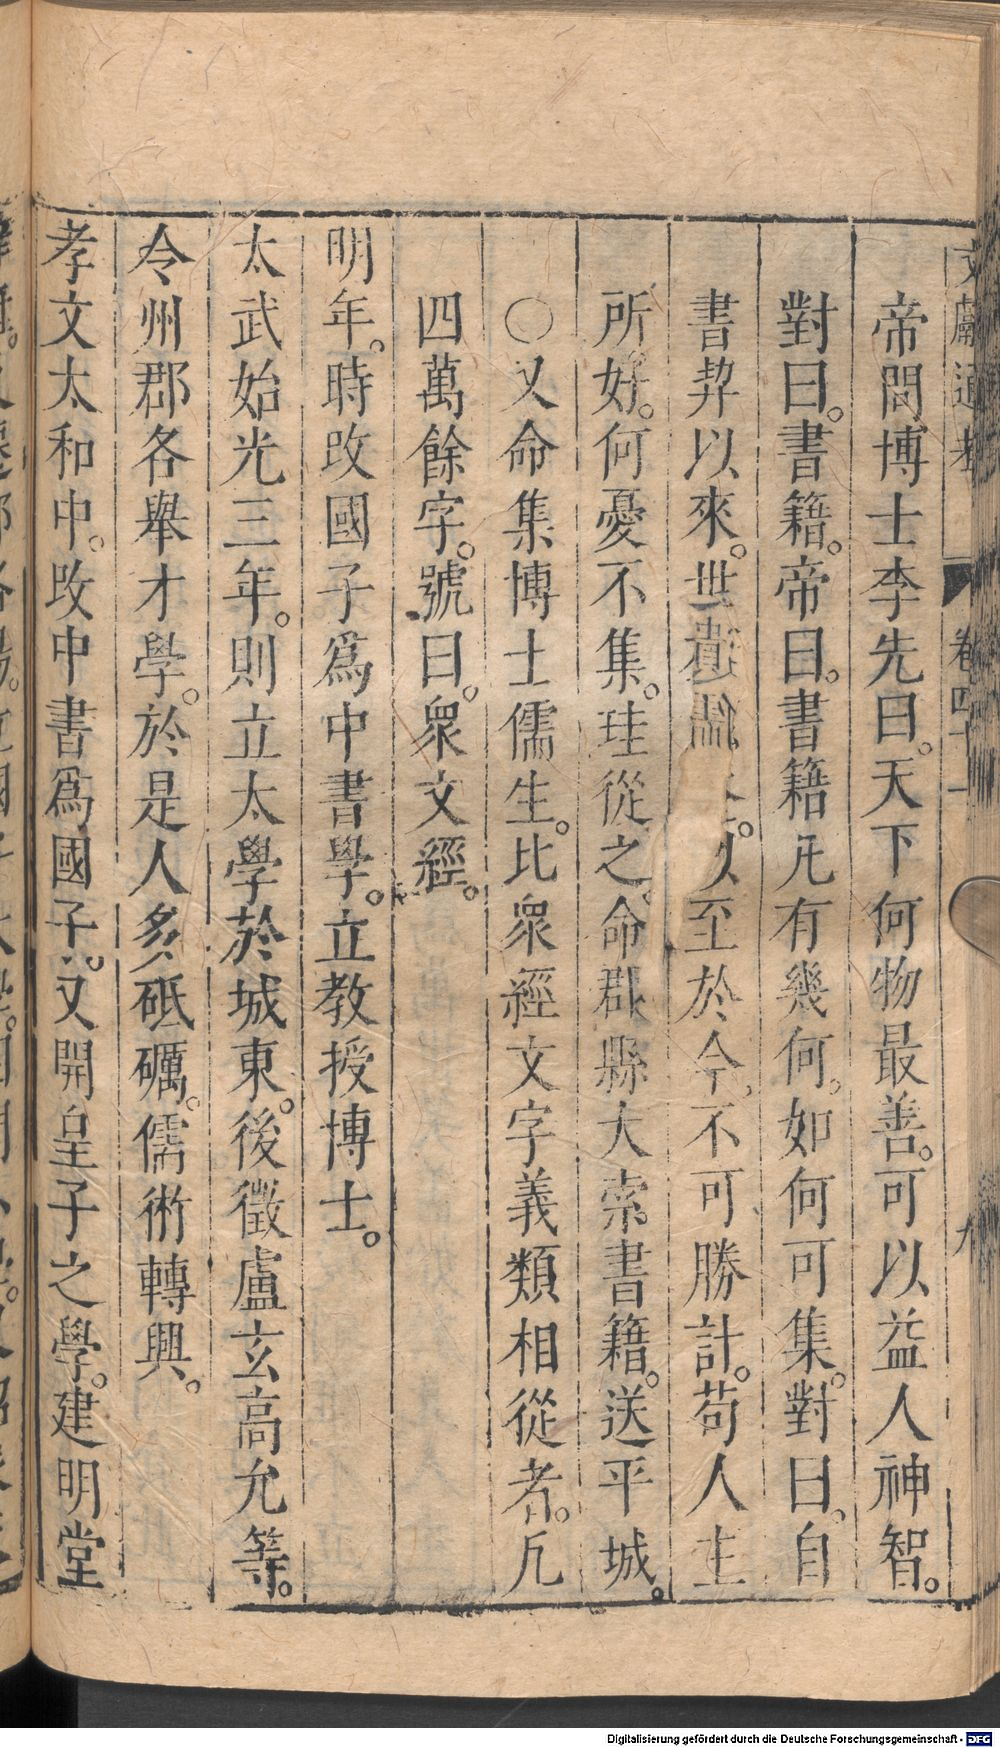 文獻通考 卷四十一 九
帝問博士李先曰。天下何物最善。可以益人神智。
對曰。書籍。帝曰。書籍凡有幾何。如何可集。對曰。自
書契以來。世 至於今。不可勝計。苟人主
所好。何憂不集。珪從之。命郡縣大索書籍。送平城。
○又命集博士儒生。比衆經文字義類相從者。凡
四萬餘字。號曰。衆文經。
明年。時改國子爲中書學。立教授博士。
太武始光三年。則立太學於城東。後徵盧玄高允等。
令州郡各舉才學。於是人多砥礪。儒術轉興。
孝文太和中。改中書爲國子。又開皇子之學。建明堂
Digitalisierung gefördert durch die Deutsche Forschungsgemeinschaft - DFG